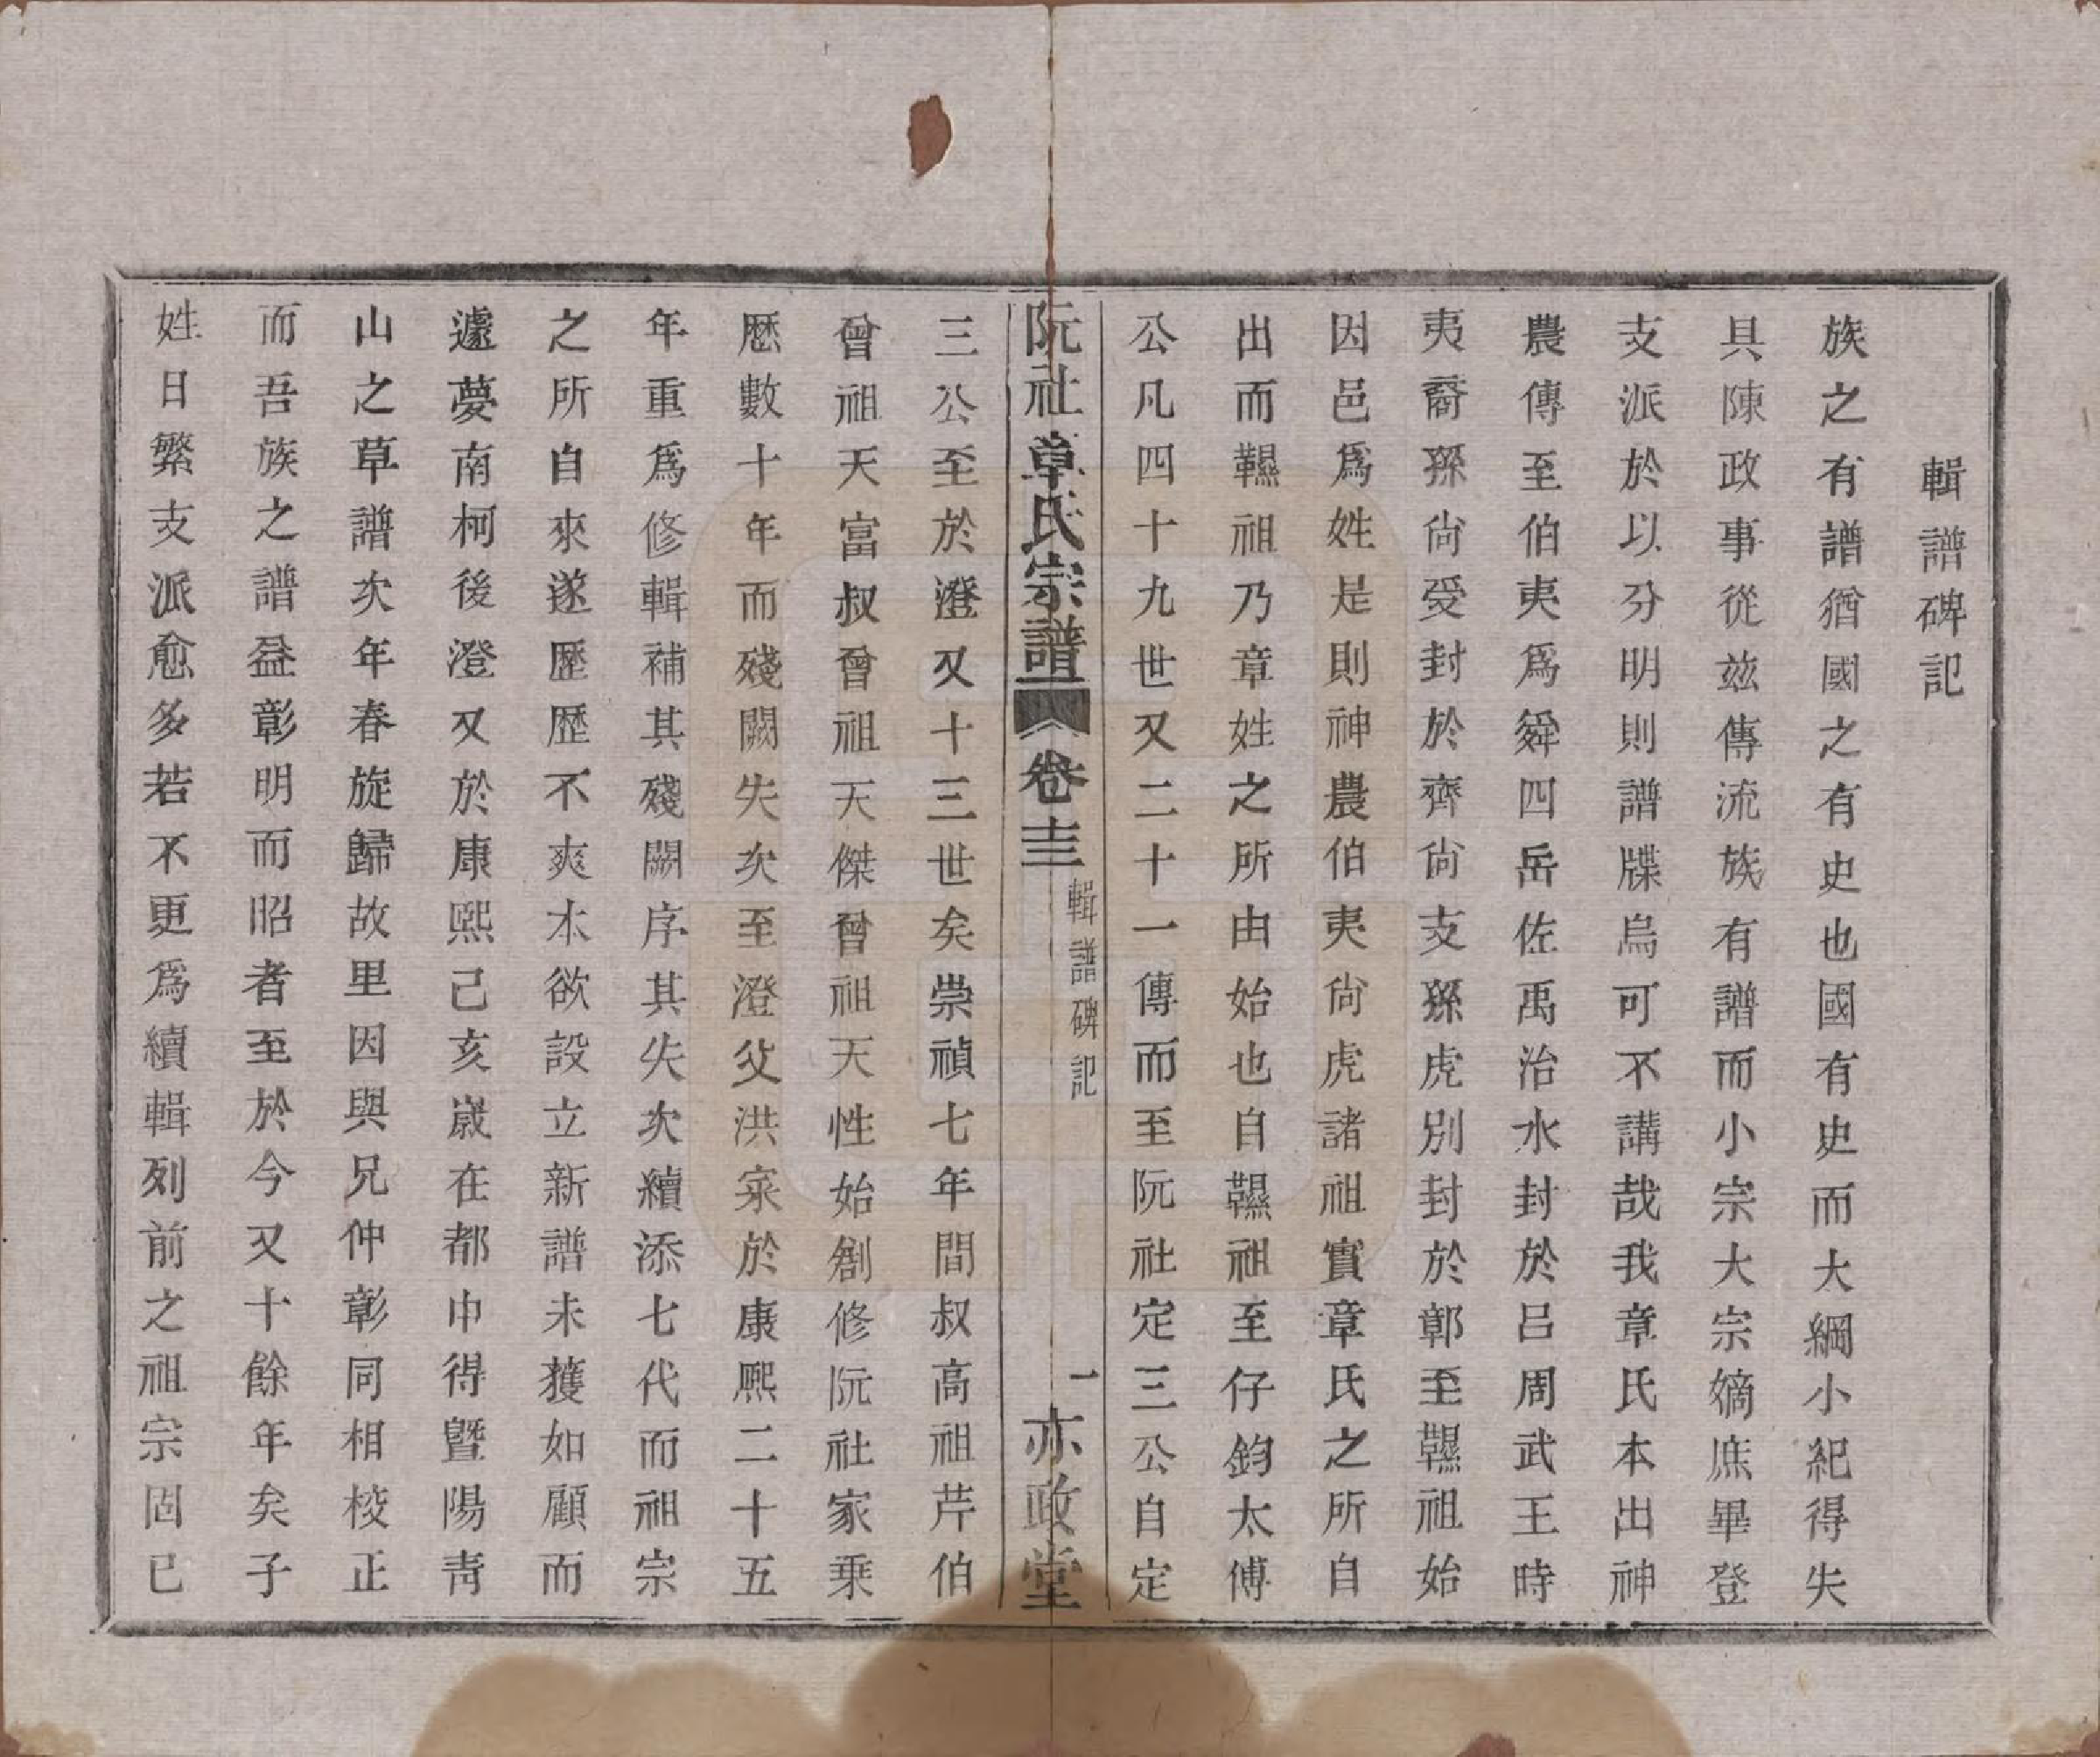 輯譜碑記
族之有譜猶國之有史也國有史而大綱小紀得失
具陳政事從茲傳流族有譜而小宗大宗嫡庶畢登
支派於以分明則譜牒烏可不講哉我章氏本出神
農傳至伯夷爲舜四岳佐禹治水封於呂周武王時
夷裔孫尙受封於齊尙支孫虎別封於鄣至韅祖始
因邑爲姓是則神農伯夷尙虎諸祖實章氏之所自
出而韅祖乃章姓之所由始也自韅祖至仔鈞太傅
公凡四十九世又二十一傳而至阮社定三公自定
阮社章氏宗譜 卷十三 輯譜碑記 一 亦政堂
三公至於澄又十三世矣崇禎七年間叔高祖芹伯
曾祖天富叔曾祖天傑曾祖天性始創修阮社家乘
歷數十年而殘闕失次至澄父洪寀於康熙二十五
年重爲修輯補其殘闕序其失次續添七代而祖宗
之所自來遂歷歷不爽本欲設立新譜未獲如願而
遽夢南柯後澄又於康熙己亥歲在都中得暨陽靑
山之草譜次年春旋歸故里因與兄仲彰同相校正
而吾族之譜益彰明而昭者至於今又十餘年矣子
姓日繁支派愈多若不更爲續輯列前之祖宗固已